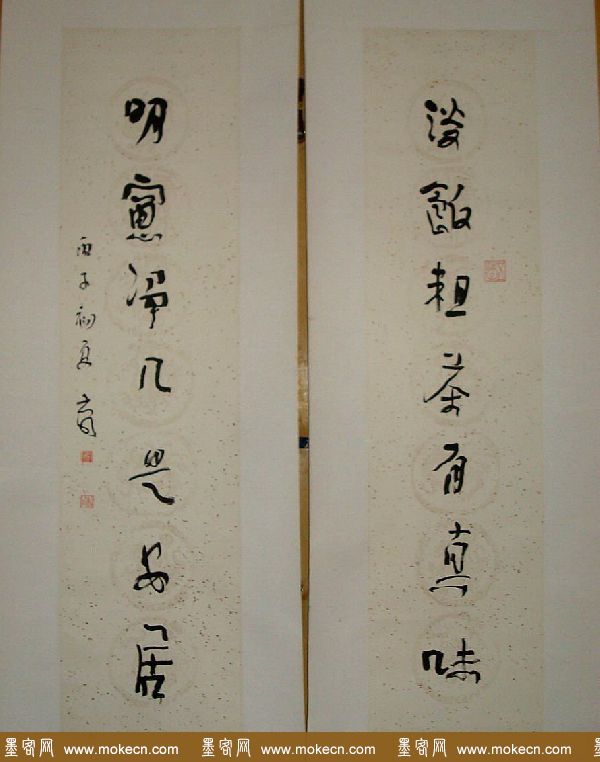 淡飯粗茶有真味
明窻淨几是安居
丙子初夏
墨客网 www.mokecn.com 墨客网 www.mokecn.com 墨客网 www.mokecn.com